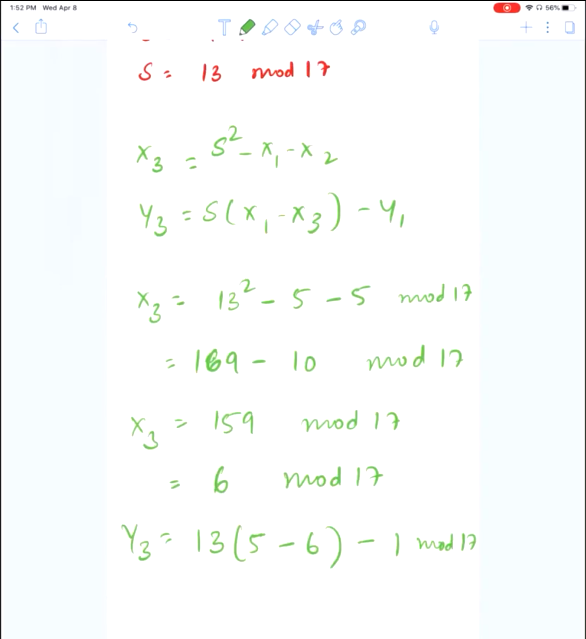 1:52 PM Wed Apr 8
56%
T
S = 13 mod 17
x₃ = S² - x₁ - x₂
y₃ = S(x₁ - x₃) - y₁
x₃ = 13² - 5 - 5 mod 17
= 169 - 10 mod 17
x₃ = 159 mod 17
= 6 mod 17
y₃ = 13(5 - 6) - 1 mod 17